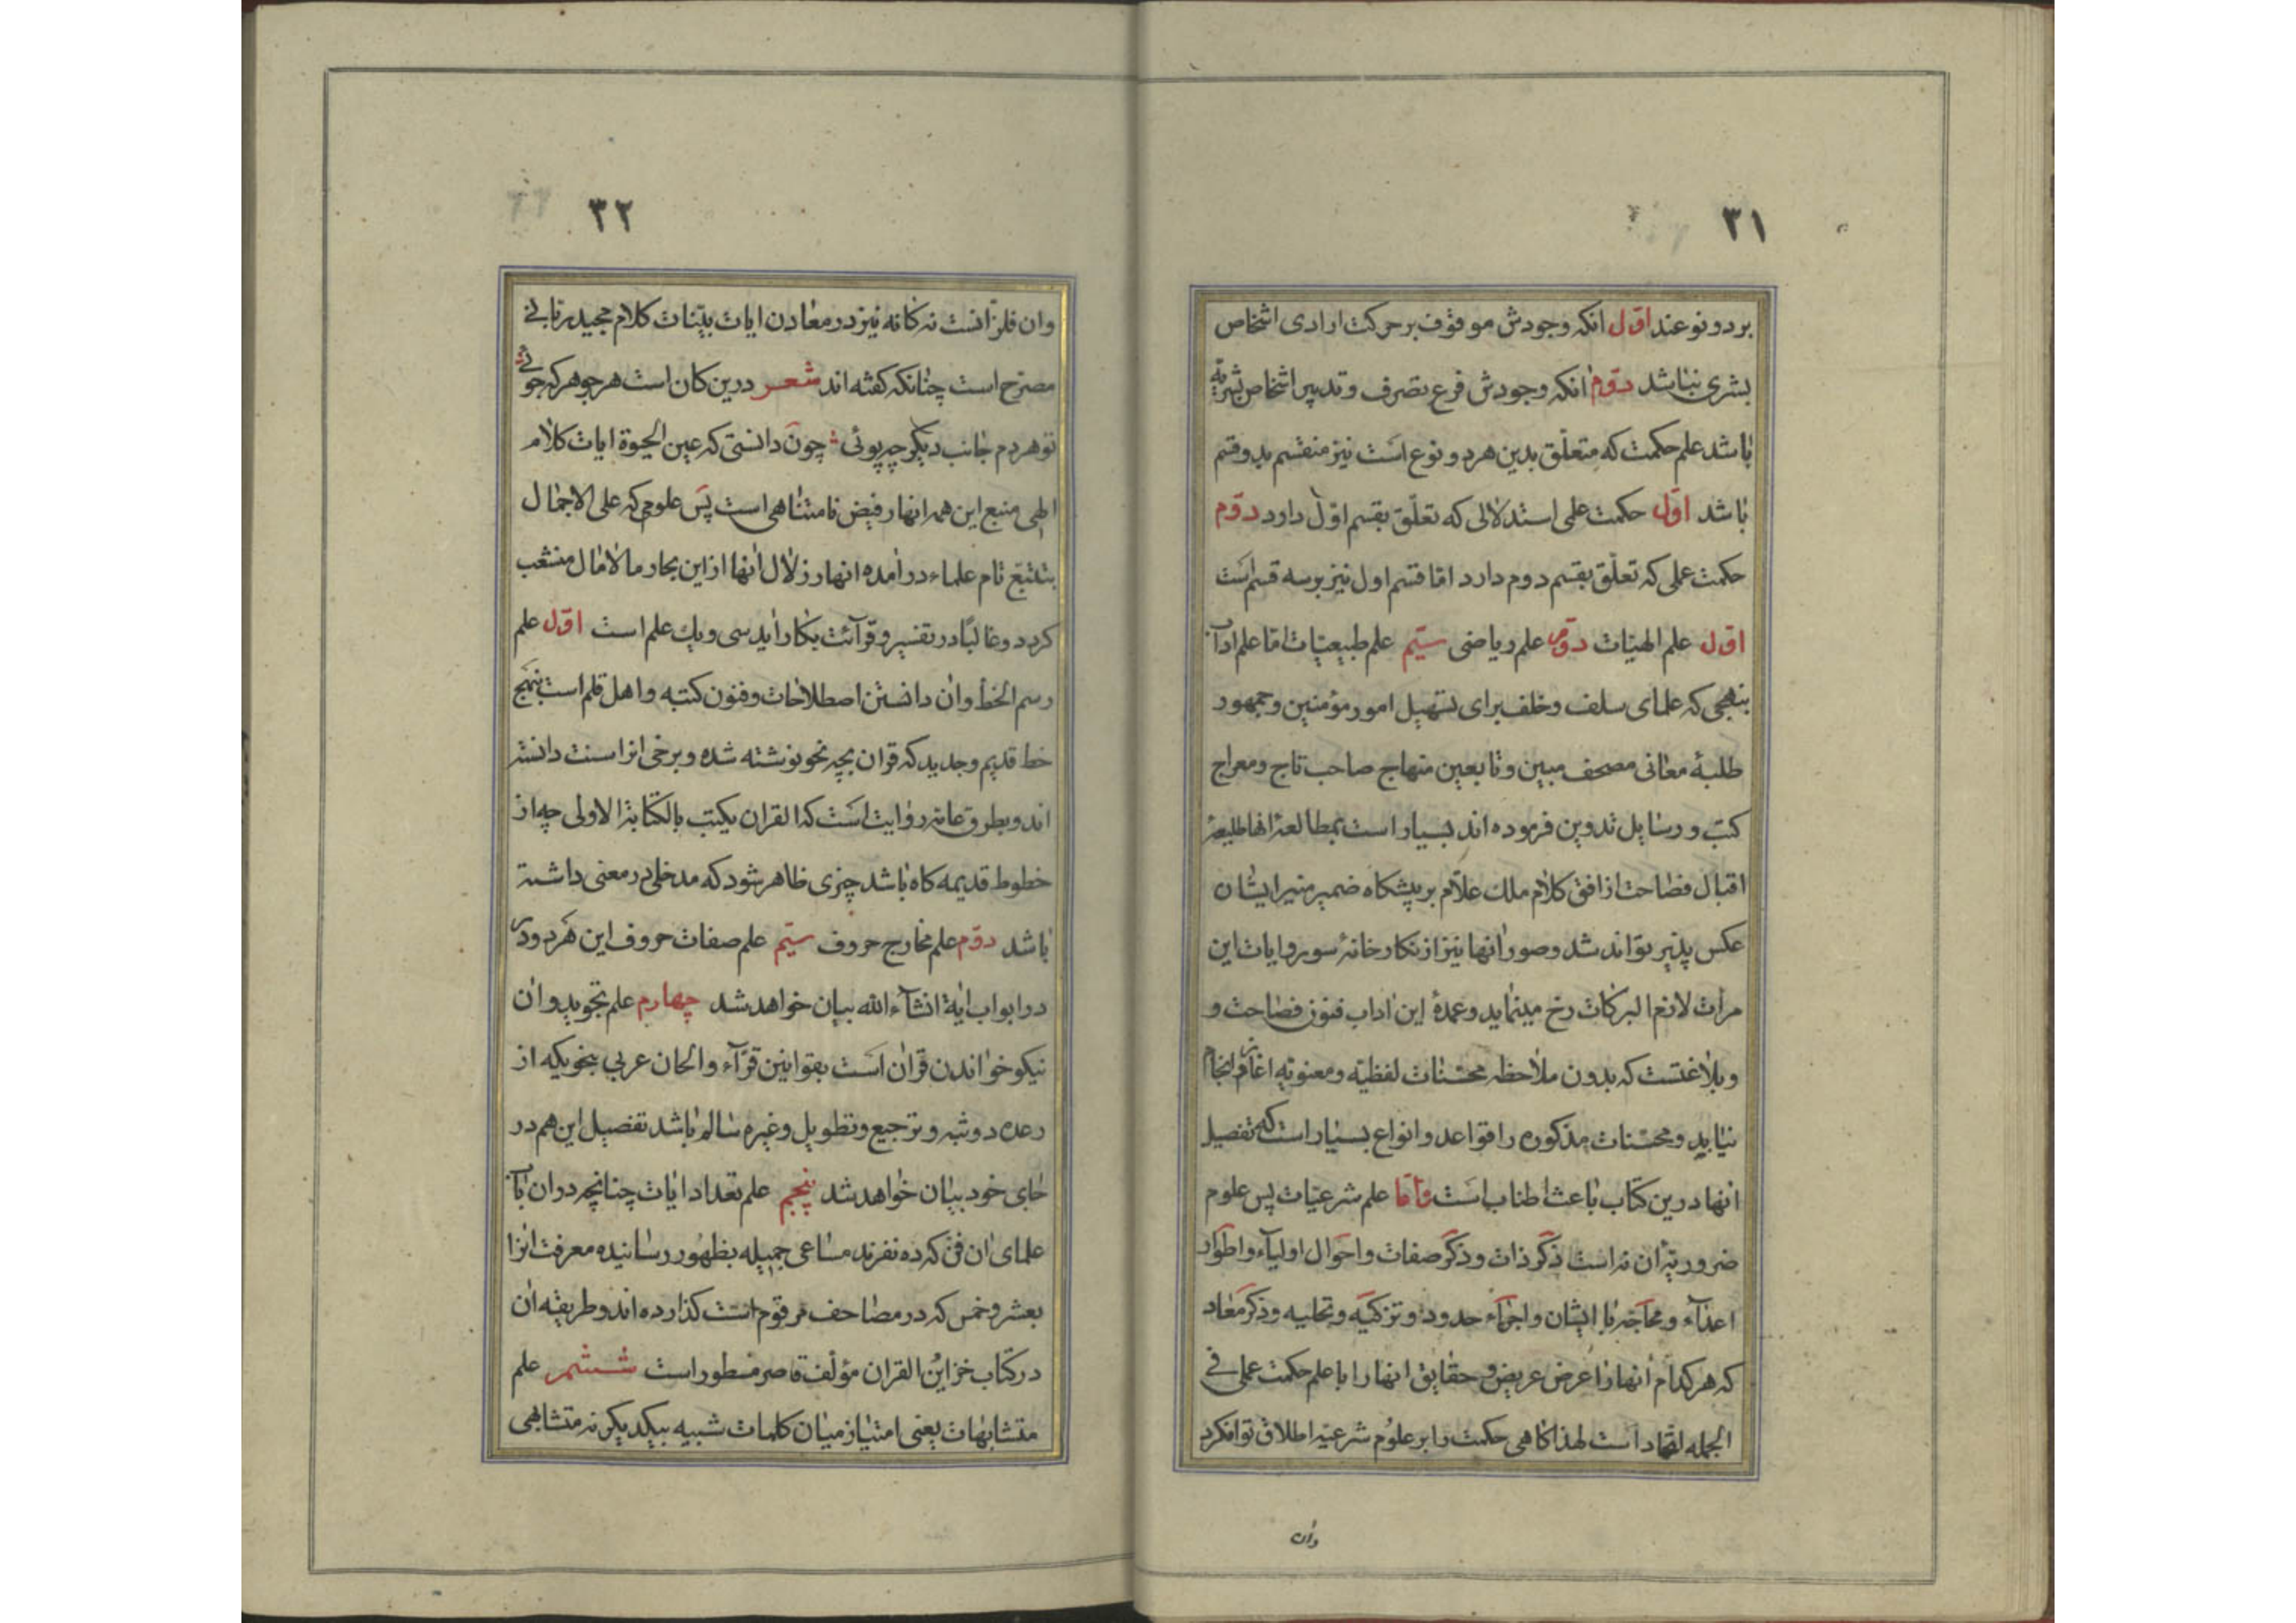 ٣١
بر دو نوعند اوّل انکه وجودش موقوف بر حرکت ارادی اشخاص
بشری نباشد دوّم انکه وجودش فرع تصرف و تدبیر اشخاص بشریه
باشد علم حکمت که متعلّق بدین هر دو نوع است نیز منقسم بدو قسم
باشد اوّل حکمت علمی استدلالی که تعلّق بقسم اوّل دارد دوّم
حکمت عملی که تعلّق بقسم دوم دارد امّا قسم اول نیز بر سه قسم است
اوّل علم الهیّات دوّم علم ریاضی سیّم علم طبیعیّات امّا علم اداب
بنهجی که علمای سلف و خلف برای تسهیل امور مؤمنین و جمهور
طلبهٔ معانی مصحف مبین و تابعین منهاج صاحب تاج و معراج
کتب و رسایل تدوین فرموده اند بسیار است بمطالعهٔ انها طلیعهٔ
اقبال فصاحت از افق کلام ملك علّام بر پیشکاه ضمیر منیر ایشان
عکس پذیر تواند شد و صور انها نیز از نکارخانهٔ سور و ایات این
مرأت البرکات رخ مینماید و عمدهٔ این اداب فنون فصاحت و
و بلاغتست که بدون ملاحظه محسّنات لفظیّه و معنویّه اغاز انجام
نیابد و محسّنات مذکوره را قواعد و انواع بسیار است که تفصیل
انها درین کتاب باعث اطناب است و امّا علم شرعیّات پس علوم
ضروریّهٔ ان نه است ذکر ذات و ذکر صفات و احوال اولیآء و اطوار
اعدآء و محاجّه با ایشان و اجرآء حدود و تزکیّه و تحلیه و ذکر معاد
که هر کدام انها را عرض عریض و حقایق انها را با علم حکمت عملی فی
الجمله اتّحاد است لهذا کاهی حکمت را بر علوم شرعیّه اطلاق توانکرد
وان
٣٢
وان فلزّ انست نه کانه نیز در معادن ایات بیّنات کلام مجید ربّانی
مصرّح است چنانکه کفته اند شعر درین کان است هر جوهر که جوئی
تو هر دم جانب دیکر چه پوئی چون دانستی که عین الحیوة ایات کلام
الهی منبع این همه انهار فیض نامتناهی است پس علومی که علی الاجمال
بتتبّع تام علماء در امده انهار زلال انها از این بحار مالامال منشعب
کردد و غالبًا در تفسیر و قرآئت بکار اید سی و یك علم است اوّل علم
رسم الخط و ان دانستن اصطلاحات و فنون کتبه و اهل قلم است بنهج
خط قدیم و جدید که قران بچه نحو نوشته شده و برخی انرا سنت دانسته
اند و بطرق عامّه روایت است که القران یکتب بالکتابة الاولی چه از
خطوط قدیمه کاه باشد چیزی ظاهر شود که مدخلی در معنی داشته
باشد دوّم علم مخارج حروف سیّم علم صفات حروف این هر دو در
در ابواب اتیة انشآء الله بیان خواهد شد چهارم علم تجوید و ان
نیکو خواندن قران است بقوانین قرّآء و الحان عربی بنحویکه از
رعده و ترجیع و تطویل و غیره سالم باشد تفصیل این هم در
جای خود بیان خواهد شد پنجم علم تعداد ایات چنانچه در ان باب
علمای ان فنّ که ده نفرند مساعی جمیله بظهور رسانیده معرفت انرا
بعشر و خمس که در مصاحف مرقوم است کذارده اند و طریقه ان
در کتاب خزاین القران مؤلف قاصر مسطور است ششم علم
متشابهات یعنی امتیاز میان کلمات شبیه بیکدیکر نه متشابهی